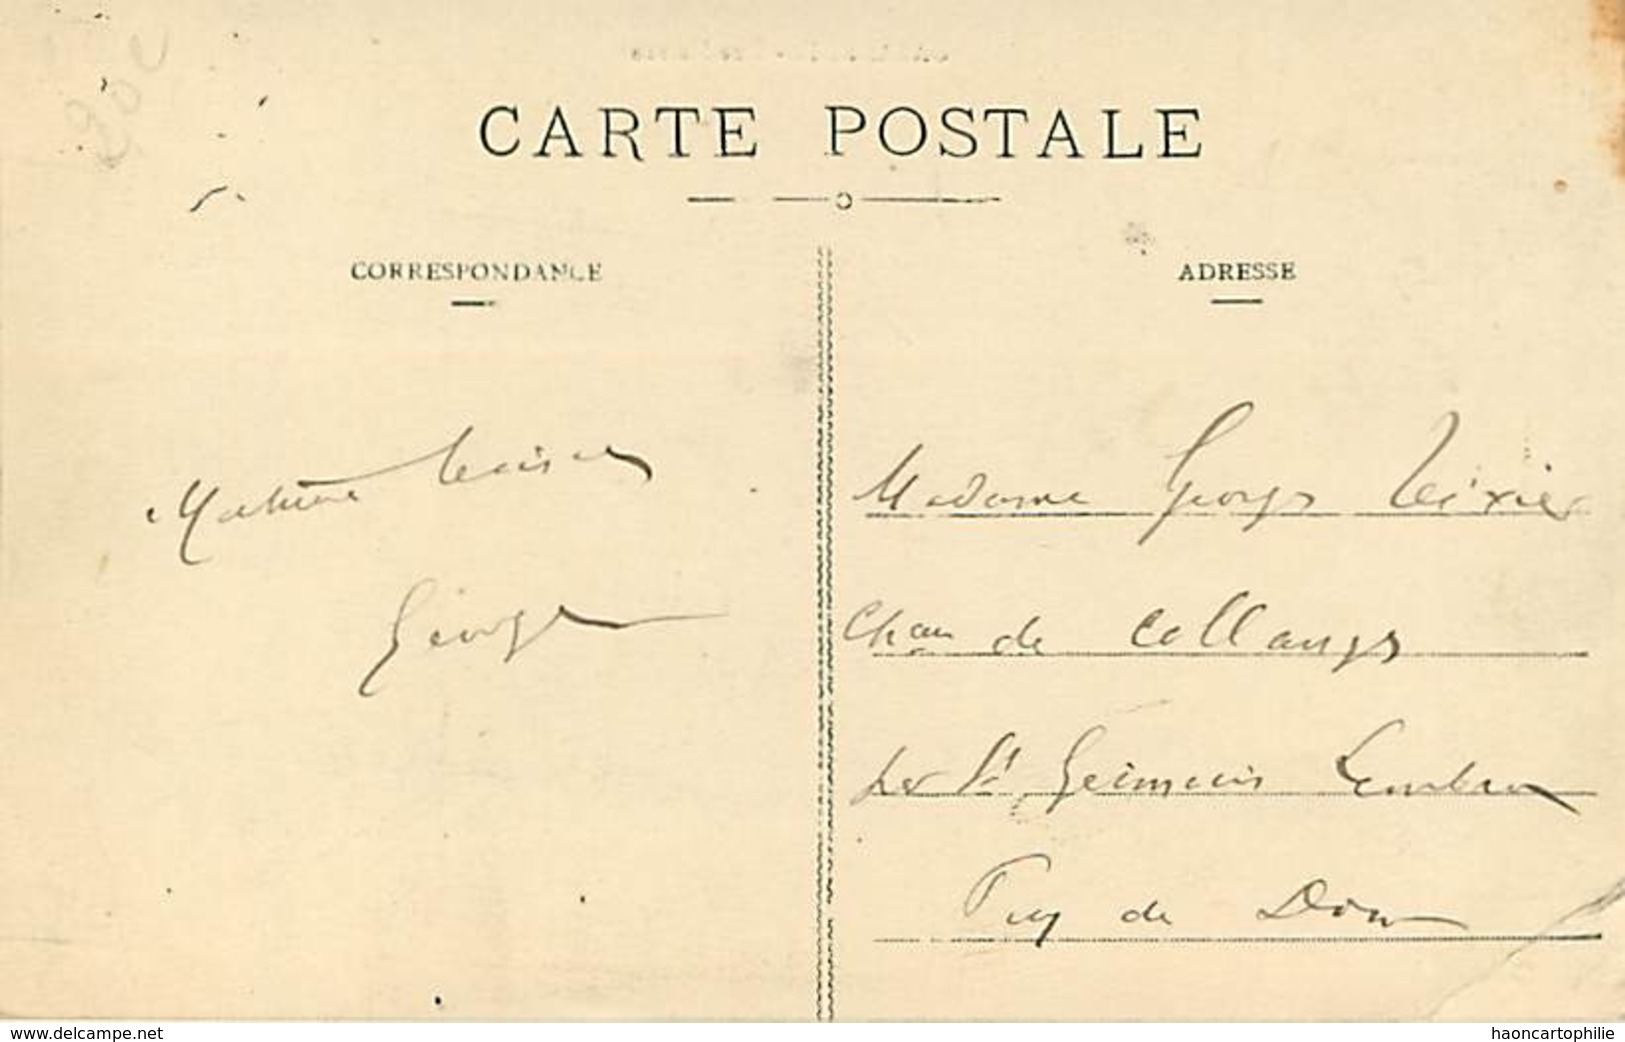 20c
CARTE POSTALE
CORRESPONDANCE
ADRESSE
Georges
Madame Georges Teixier
Chau de Collanges
par St Germain Lembron
Puy de Dôme
www.delcampe.net
haoncartophilie